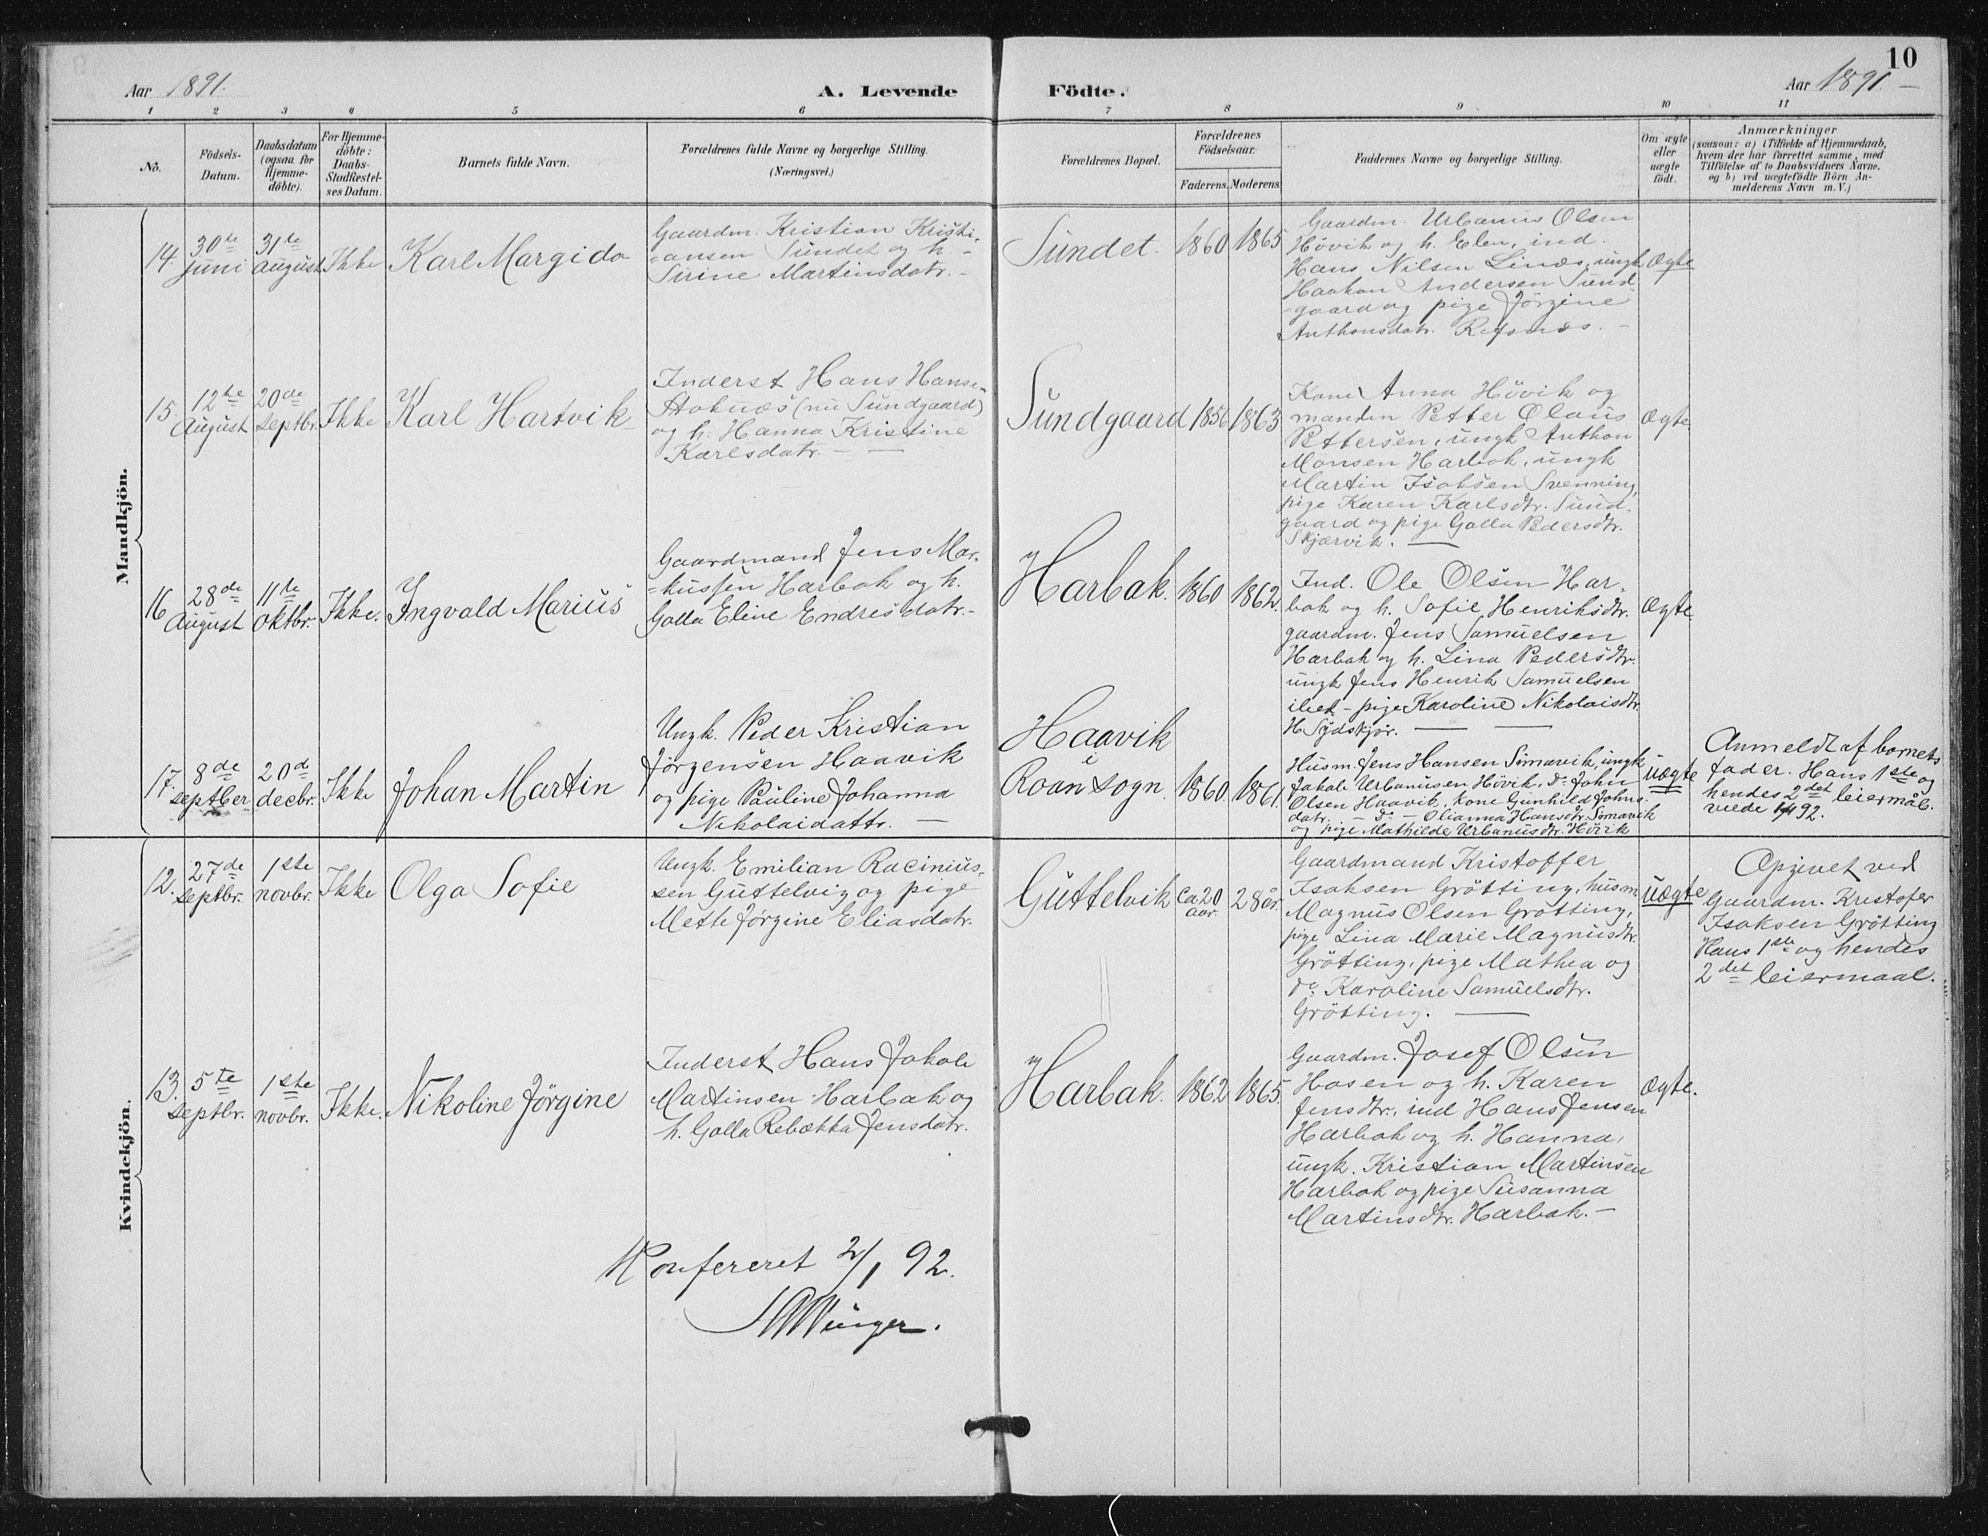 10
Aar 1891.
A. Levende
Födte.
Aar 1891.
1 2 3 4 5 6 7 8 9 10 11
No.
Födsels-
Datum.
Daabsdatum
(ogsaa for
Hjemme-
döbte).
For Hjemme-
döbte:
Daabs-
Stadfæstel-
ses Datum.
Barnets fulde Navn.
Forældrenes fulde Navne og borgerlige Stilling.
(Næringsvei.)
Forældrenes Bopæl.
Forældrenes
Födselsaar.
Faderens. Moderens.
Faddernes Navne og borgerlige Stilling.
Om ægte
eller
uægte
födt.
Anmærkninger
(saasom: a) i Tilfælde af Hjemmedaab,
hvem der har forrettet samme, med
Tilföielse af to Daabsvidners Navne.
og b) ved uægtefödte Börn An-
melderens Navn m. V.)
Mandkjön.
14.
30te
juni
31te
August
Ikke
Karl Margido
Gaardm. Kristian Kristi-
ansen Sundet og h.
Sirine Martinsdatr.
Sundet.
1860
1865
Gaardm. Urbanus Olsen
Hövik og h. Elen, ind.
Hans Nilsen Linæs, ungk
Haakon Andersen Sund-
gaard og pige Jörgine
Anthonsdatr. Refsnæs.
Ægte
15.
12te
August
20de
Septbr.
Ikke
Karl Hartvik
Inderst Hans Hanse-
Stoknæs (nu Sundgaard)
og h. Hanna Kristine
Karlsdatr.
Sundgaard
1856
1863
Kone Anna Hövik og
manden Petter Olaus
Pettersen, ungk Anthon
Monsen Harbok, ungk
Martin Isaksen Svenning,
pige Karen Karlsdtr. Sund-
gaard og pige Golla Pedersdtr.
Skjærvik.
Ægte.
16
28de
August
11te
Oktbr.
Ikke.
Ingvald Marius
Gaardmand Jens Mar-
kussen Harbak og h.
Golla Eline Endresdatr.
Harbak.
1860
1862.
Ind. Ole Olsen Har-
bak og h. Sofie Henriksdtr.
gaardm. Jens Samuelsen
Harbak og h. Lina Pedersdtr.
ungk Jens Henrik Samuelsen
ibet - pige Karoline Nikolaisdtr.
H Sydskjör.
Ægte
17.
8de
septber
20de
decbr.
Ikke
Johan Martin
Ungk. Peder Kristian
Jörgensen Haavik
og pige Pauline Johanna
Nikolaidattr.
Haavik
i
Roan sogn.
1860
1861.
Husm. Jens Hansen Sömavik, ungk
Jakob Urbanusen Hövik, do John
Olsen Haavik, Kone Gunhild Johns-
datr. - do - Olianna Hansdtr. Sömavik
og pige Mathilde Urbanusdtr. Hövik
Uægte
Anmeldt af barnets
fader. Hans 1ste og
hendes 2det leiermål.
Kvindekjön.
12.
27de
Septbr.
1ste
novbr.
Ikke
Olga Sofie
Ungk. Emilian Racinius-
sen Guttelvig og pige
Mette Jörgine Eliasdatr.
Guttelvik
ca 20
aar.
28 år.
Gaardmand Kristoffer
Isaksen Grötting, husm.
Magnus Olsen Grötting,
pige Lina Marie Magnusdtr.
Grötting, pige Mathea og
do Karoline Samuelsdtr.
Grötting.
Uægte
Opgivet ved
Gaardm. Kristofer
Isaksen Grötting
Hans 1ste og hendes
2det leiermaal.
13.
5te
Septbr.
1ste
novbr.
Ikke.
Nikoline Jörgine
Inderst Hans Jakob
Martinsen Harbak og
h. Golla Rebækka Jensdatr.
Harbak.
1862
1865.
Gaardm. Josef Olsen
Hosen og h. Karen
Jensdtr., ind Hans Jensen
Harbak og h. Hanna,
ungk. Kristian Martinsen
Harbak og pige Susanna
Martinsdtr. Harbak.
Ægte.
Konfereret 2/1 92.